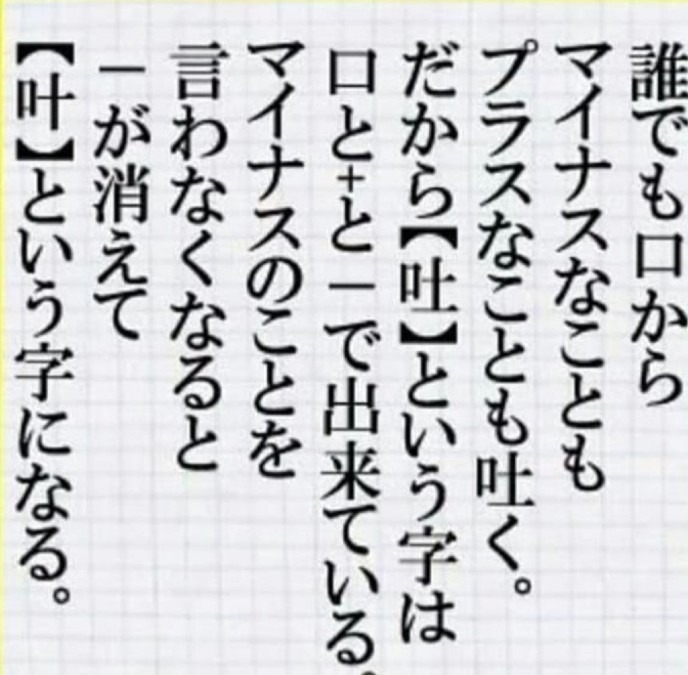 誰でも口から
マイナスなことも
プラスなことも吐く。
だから【吐】という字は
口と+と－で出来ている。
マイナスのことを
言わなくなると
－が消えて
【叶】という字になる。